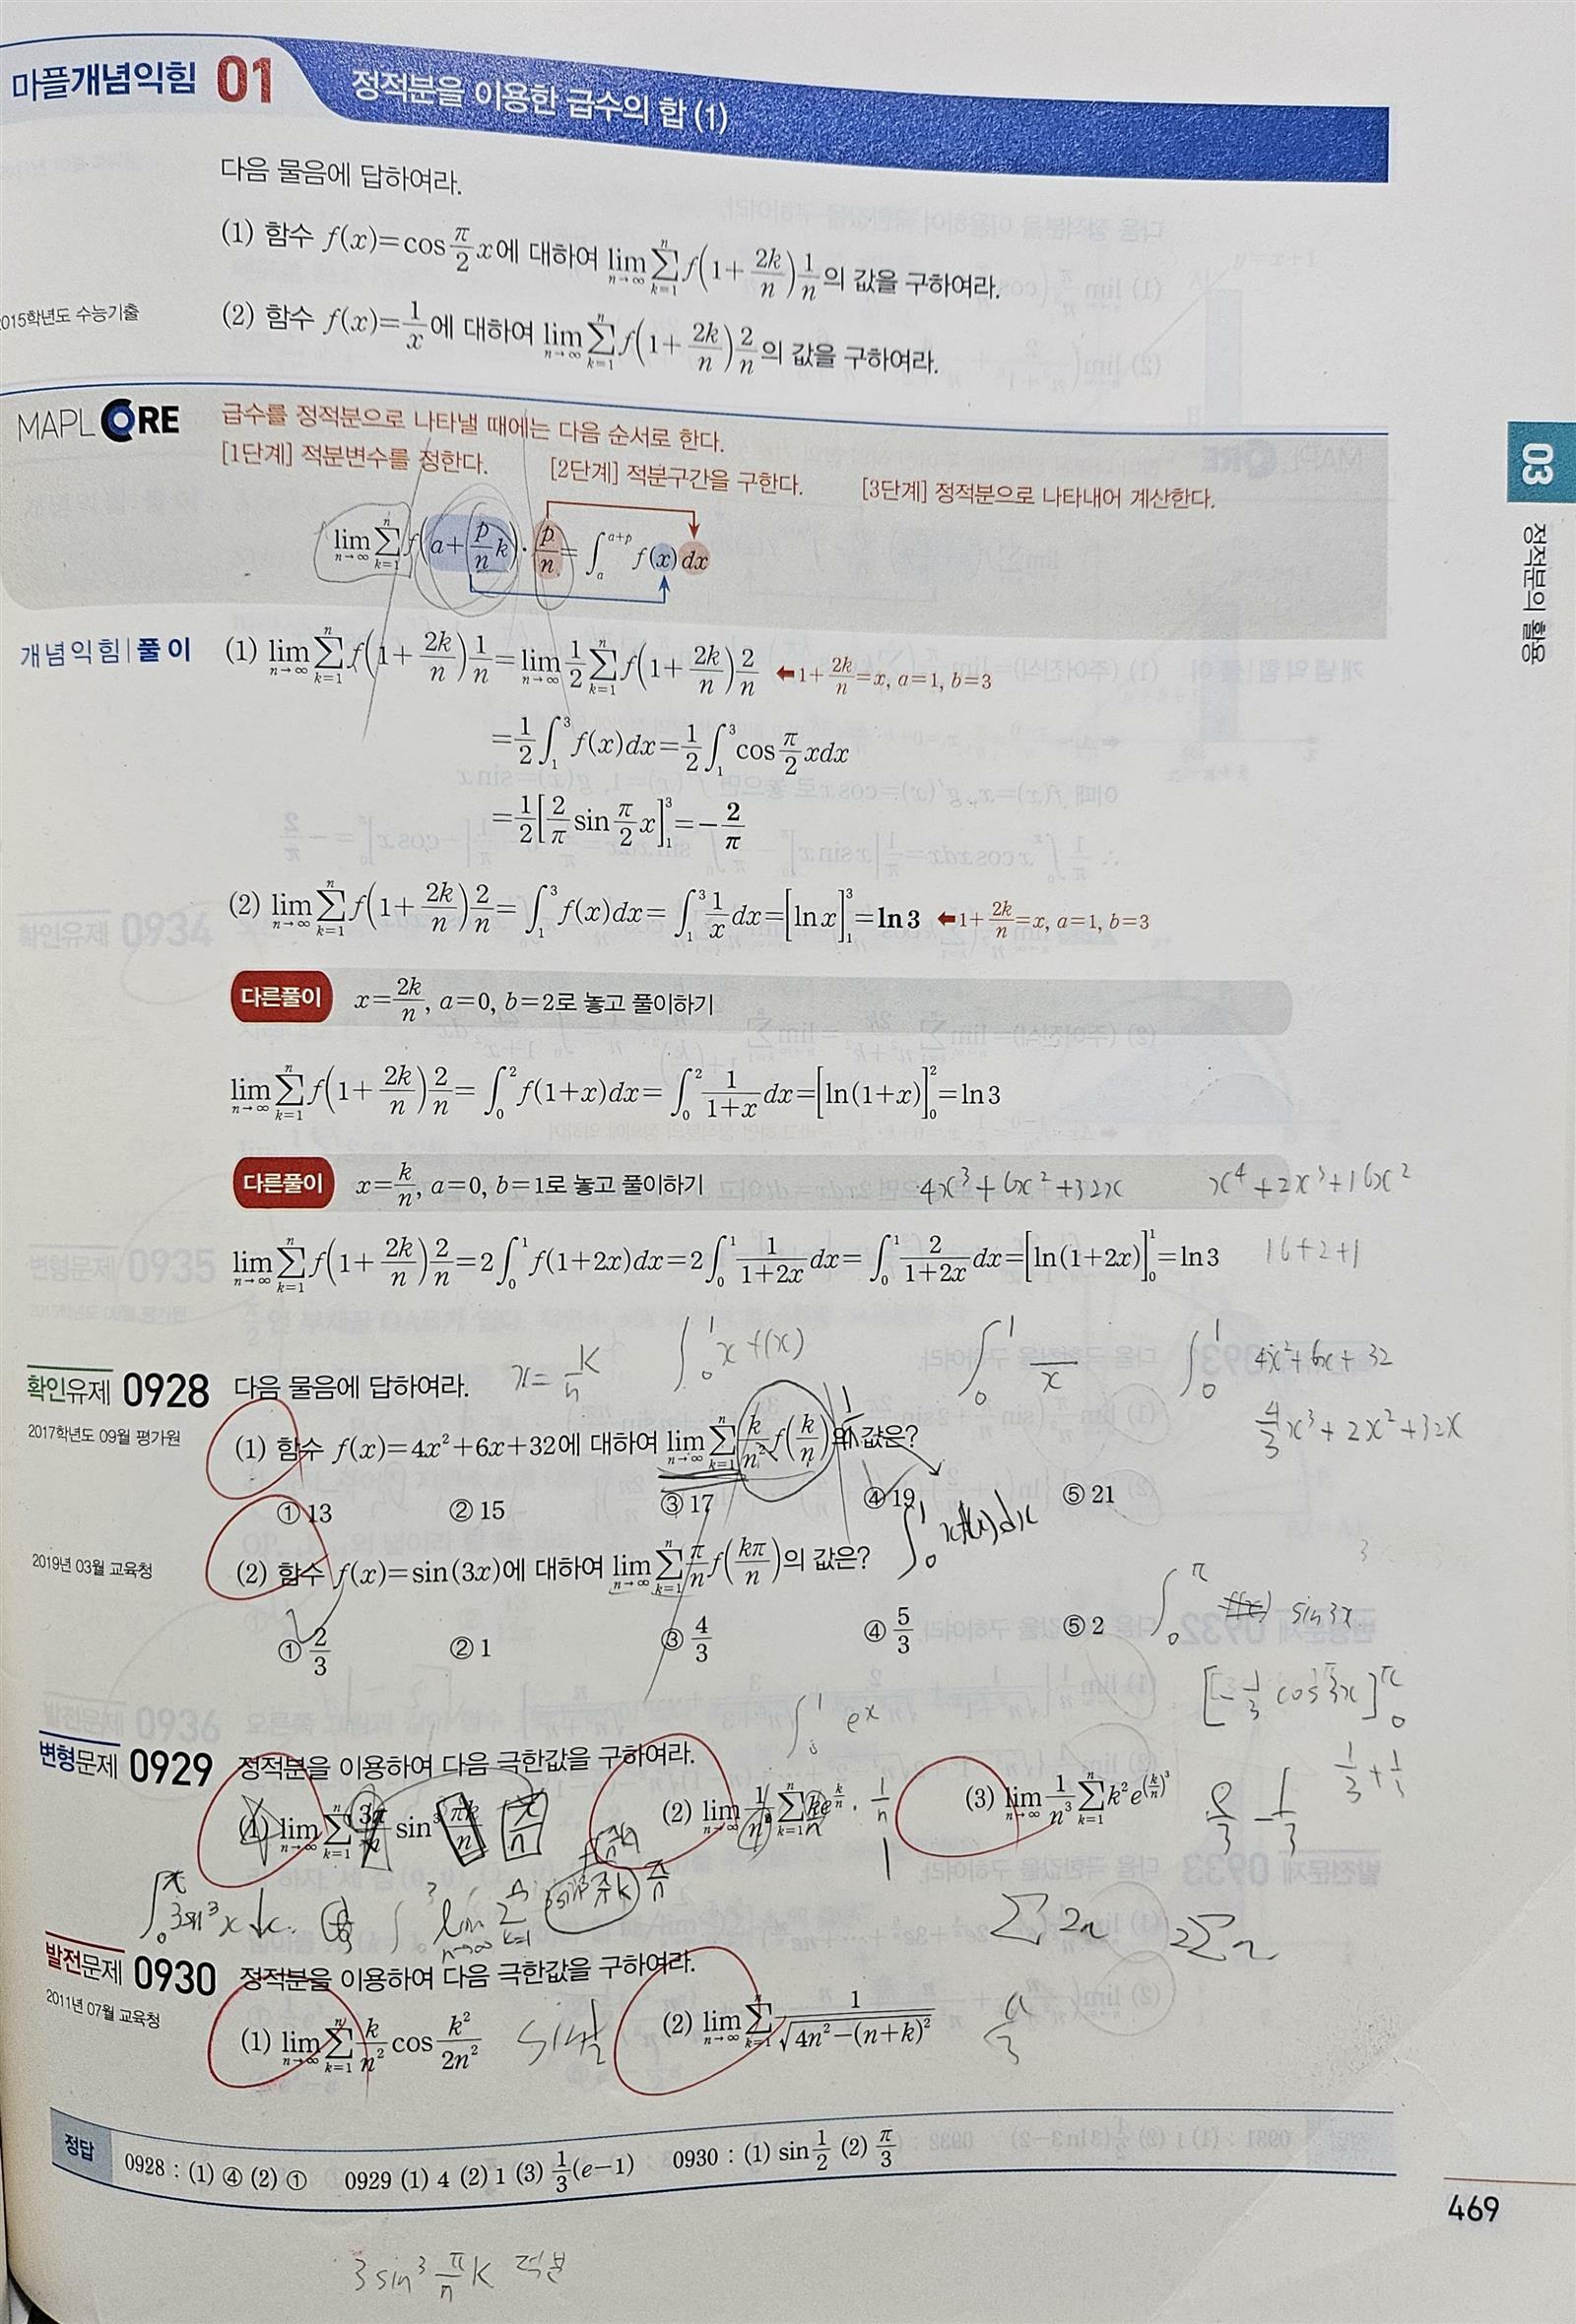 마플개념익힘 01 정적분을 이용한 급수의 합 (1)
다음 물음에 답하여라.
(1) 함수 f(x)=cos π/2 x에 대하여 lim_{n→∞} Σ_{k=1}^{n} f(1+2k/n) 1/n의 값을 구하여라.
2015학년도 수능기출
(2) 함수 f(x)=1/x에 대하여 lim_{n→∞} Σ_{k=1}^{n} f(1+2k/n) 2/n의 값을 구하여라.
MAPL CORE
급수를 정적분으로 나타낼 때에는 다음 순서로 한다.
[1단계] 적분변수를 정한다. [2단계] 적분구간을 구한다. [3단계] 정적분으로 나타내어 계산한다.
lim_{n→∞} Σ_{k=1}^{n} f(a+p/n k)·p/n = ∫_a^{a+p} f(x)dx
개념익힘 | 풀이
(1) lim_{n→∞} Σ_{k=1}^{n} f(1+2k/n) 1/n = lim_{n→∞} 1/2 Σ_{k=1}^{n} f(1+2k/n) 2/n ⬅1+2k/n=x, a=1, b=3
=1/2 ∫_1^3 f(x)dx=1/2 ∫_1^3 cos π/2 xdx
=1/2 [2/π sin π/2 x]_1^3=-2/π
(2) lim_{n→∞} Σ_{k=1}^{n} f(1+2k/n) 2/n = ∫_1^3 f(x)dx= ∫_1^3 1/x dx=[ln x]_1^3=ln 3 ⬅1+2k/n=x, a=1, b=3
다른풀이 x=2k/n, a=0, b=2로 놓고 풀이하기
lim_{n→∞} Σ_{k=1}^{n} f(1+2k/n) 2/n = ∫_0^2 f(1+x)dx= ∫_0^2 1/(1+x) dx=[ln(1+x)]_0^2=ln 3
다른풀이 x=k/n, a=0, b=1로 놓고 풀이하기
4x³+6x²+32x x⁴+2x³+16x²
lim_{n→∞} Σ_{k=1}^{n} f(1+2k/n) 2/n =2∫_0^1 f(1+2x)dx=2∫_0^1 1/(1+2x) dx= ∫_0^1 2/(1+2x) dx=[ln(1+2x)]_0^1=ln 3
16+2+1
확인유제 0928 다음 물음에 답하여라.
x=k/n ∫_0^1 x f(x) ∫_0^1 /x ∫_0^1 4x²+6x+32
4/3 x³+2x²+32x
2017학년도 09월 평가원
(1) 함수 f(x)=4x²+6x+32에 대하여 lim_{n→∞} Σ_{k=1}^{n} k/n² f(k/n)의 값은?
① 13 ② 15 ③ 17 ④ 19 ⑤ 21
∫_0^1 xf(x)dx
2019년 03월 교육청
(2) 함수 f(x)=sin(3x)에 대하여 lim_{n→∞} Σ_{k=1}^{n} π/n f(kπ/n)의 값은?
① 2/3 ② 1 ③ 4/3 ④ 5/3 ⑤ 2
∫_0^π sin3x
[-1/3 cos3x]_0^π
1/3+1/3
∫_0^1 eˣ
변형문제 0929 정적분을 이용하여 다음 극한값을 구하여라.
(1) lim_{n→∞} Σ_{k=1}^{n} 3π/n sin³ πk/n
(2) lim_{n→∞} 1/n² Σ_{k=1}^{n} ke^{k/n}
(3) lim_{n→∞} 1/n³ Σ_{k=1}^{n} k²e^{(k/n)³}
e/3 - 1/3
1
∫_0^π 3sin³x dx
lim_{n→∞} Σ_{k=1}^{n} 3sin³ π/n k π/n
Σ2n 2Σn
발전문제 0930 정적분을 이용하여 다음 극한값을 구하여라.
2011년 07월 교육청
(1) lim_{n→∞} Σ_{k=1}^{n} k/n² cos k²/2n²
sin 1/2
(2) lim_{n→∞} Σ_{k=1}^{n} 1/√(4n²-(n+k)²)
π/3
정답 0928 : (1) ④ (2) ① 0929 (1) 4 (2) 1 (3) 1/3(e-1) 0930 : (1) sin 1/2 (2) π/3
3sin³ π/n k 적분
03 정적분의 활용
469